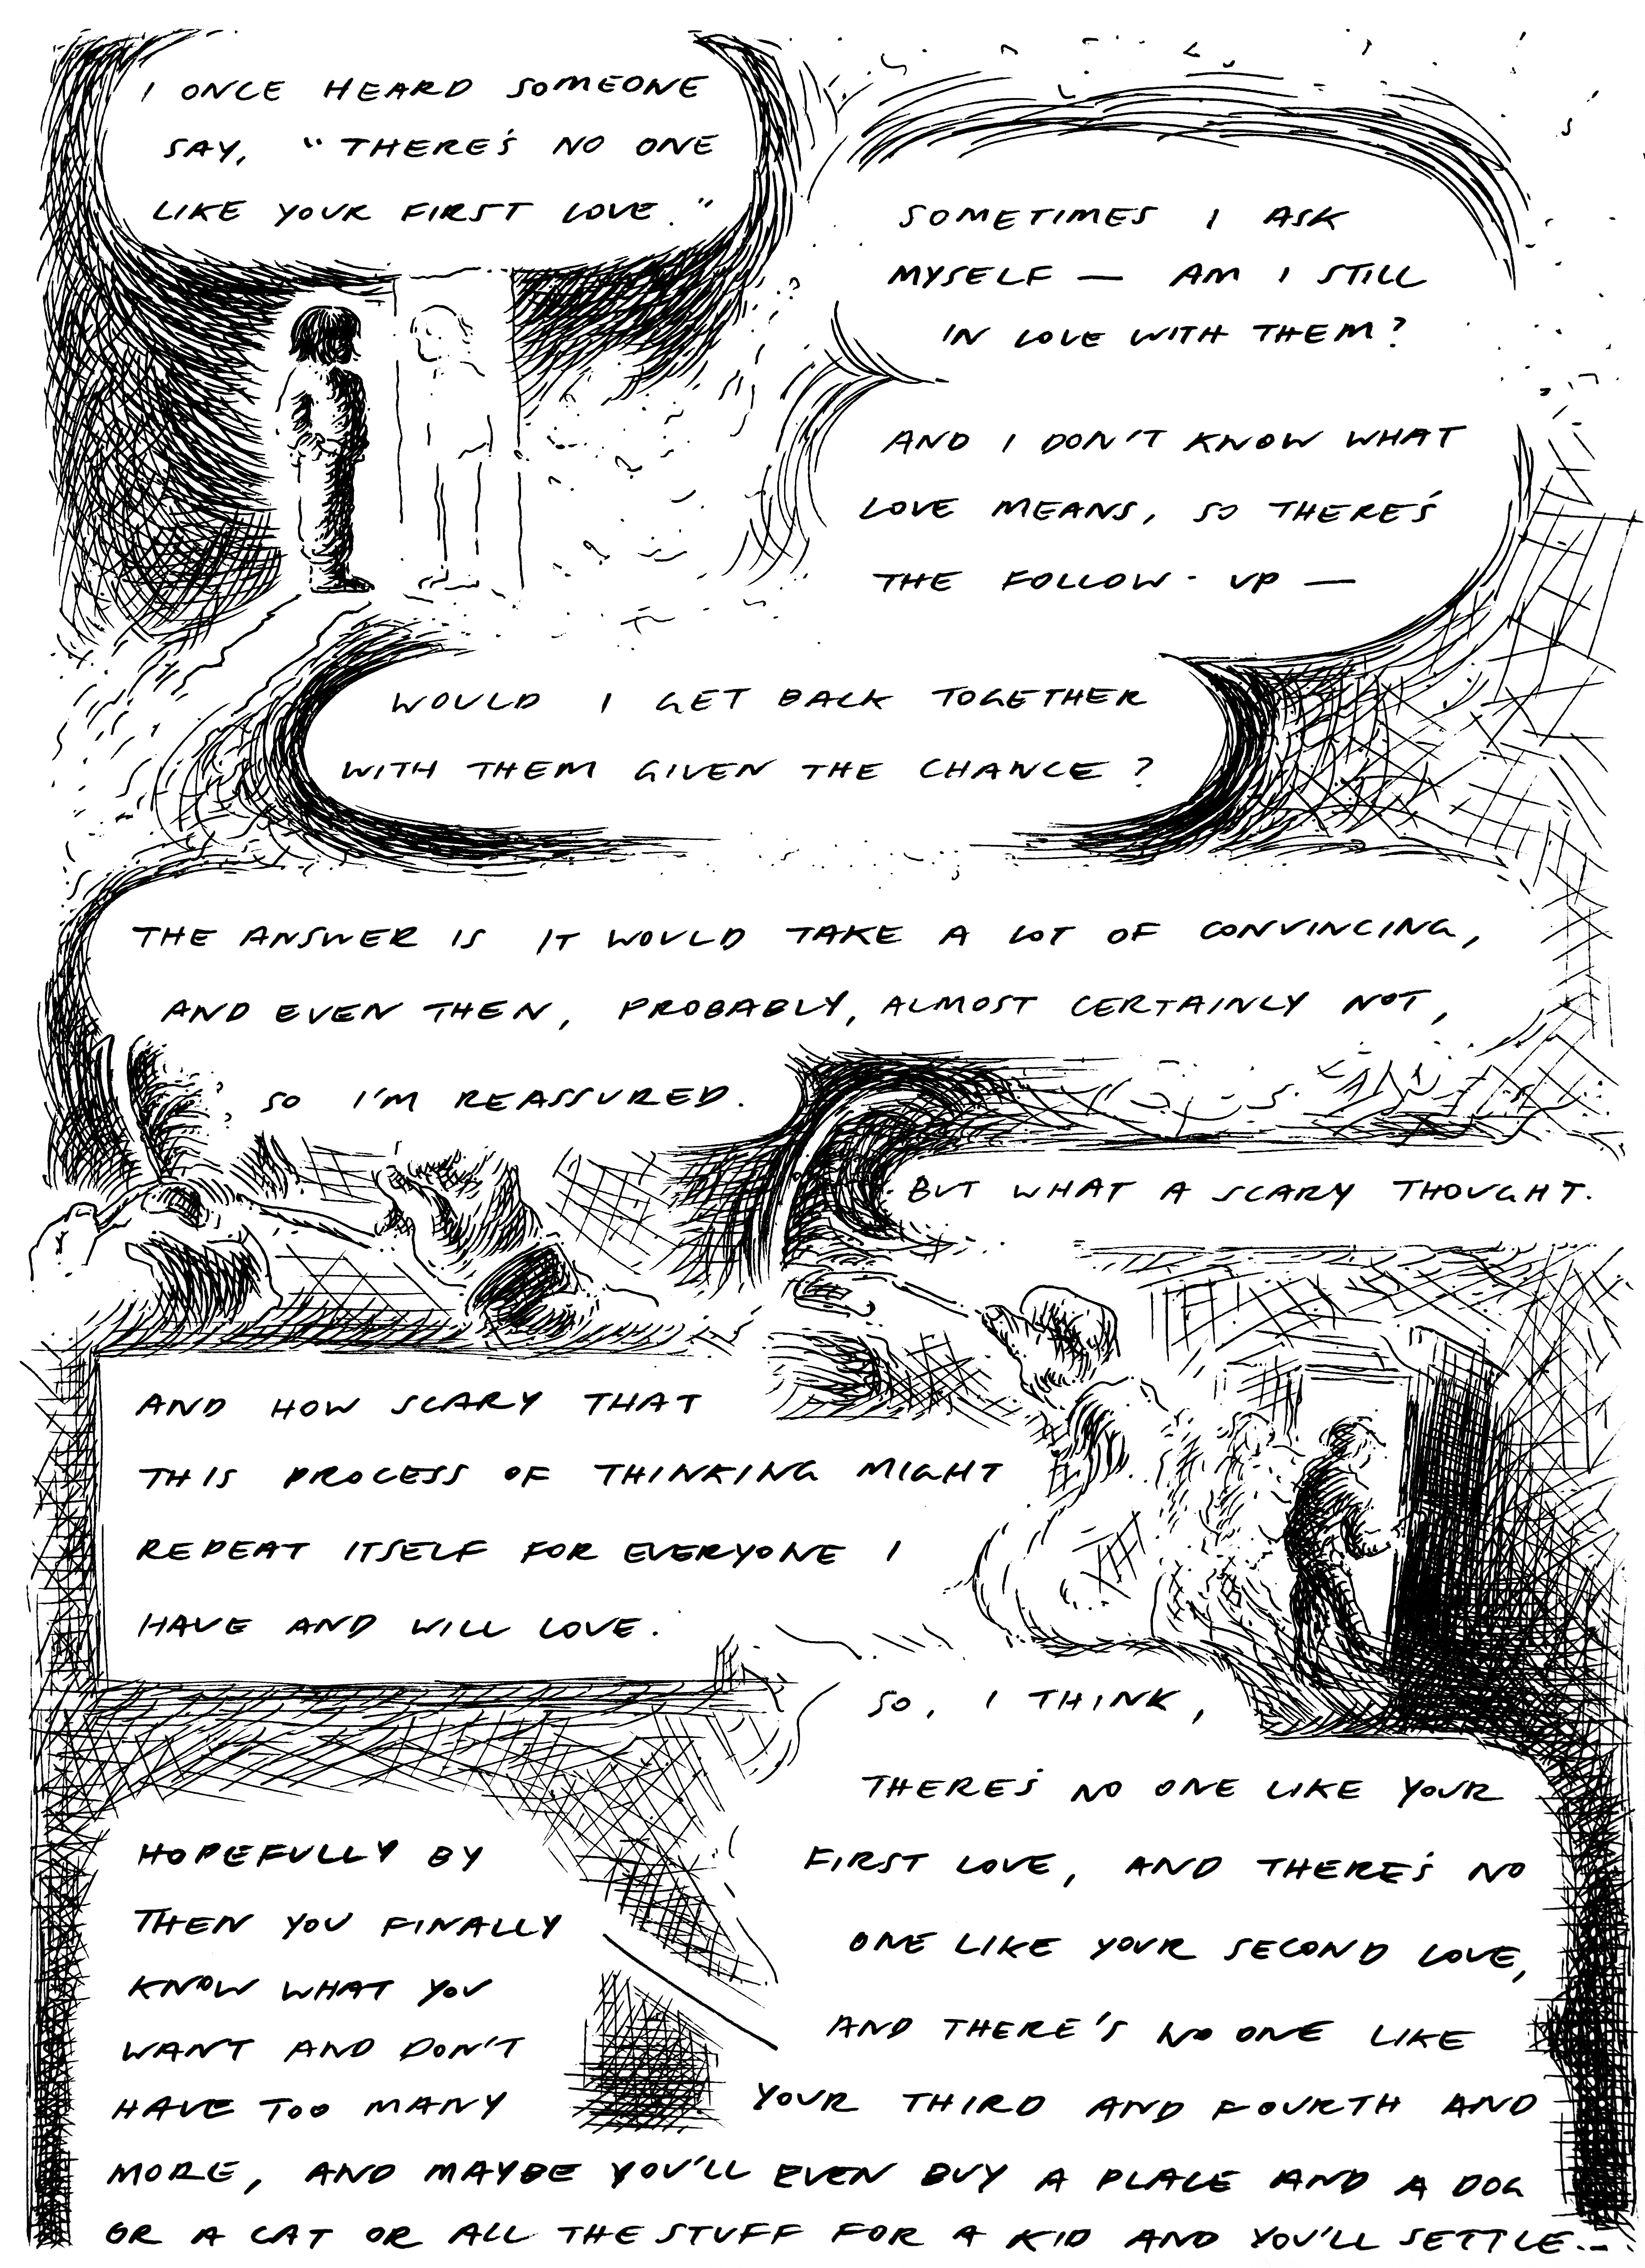 I ONCE HEARD SOMEONE
SAY, "THERE'S NO ONE
LIKE YOUR FIRST LOVE."
SOMETIMES I ASK
MYSELF — AM I STILL
IN LOVE WITH THEM?
AND I DON'T KNOW WHAT
LOVE MEANS, SO THERE'S
THE FOLLOW-UP —
WOULD I GET BACK TOGETHER
WITH THEM GIVEN THE CHANCE?
THE ANSWER IS IT WOULD TAKE A LOT OF CONVINCING,
AND EVEN THEN, PROBABLY, ALMOST CERTAINLY NOT,
SO I'M REASSURED.
BUT WHAT A SCARY THOUGHT.
AND HOW SCARY THAT
THIS PROCESS OF THINKING MIGHT
REPEAT ITSELF FOR EVERYONE I
HAVE AND WILL LOVE.
SO, I THINK,
THERE'S NO ONE LIKE YOUR
FIRST LOVE, AND THERE'S NO
ONE LIKE YOUR SECOND LOVE,
AND THERE'S NO ONE LIKE
YOUR THIRD AND FOURTH AND
HOPEFULLY BY
THEN YOU FINALLY
KNOW WHAT YOU
WANT AND DON'T
HAVE TOO MANY
MORE, AND MAYBE YOU'LL EVEN BUY A PLACE AND A DOG
OR A CAT OR ALL THE STUFF FOR A KID AND YOU'LL SETTLE...